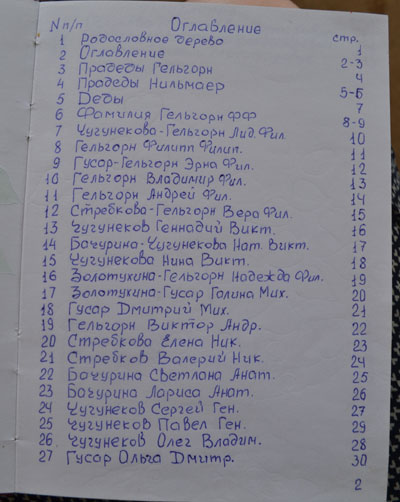 N п/п Оглавление стр.
1 Родословное дерево 1
2 Оглавление 2-3
3 Прадеды Гельгорн 4
4 Прадеды Нильмаер 5-6
5 Деды 7
6 Фамилия Гельгорн ФФ 8-9
7 Чугунекова-Гельгорн Лид. Фил. 10
8 Гельгорн Филипп Филип. 11
9 Гусар-Гельгорн Эрна Фил. 12
10 Гельгорн Владимир Фил. 13
11 Гельгорн Андрей Фил. 14
12 Стребкова-Гельгорн Вера Фил. 15
13 Чугунеков Геннадий Викт. 16
14 Бачурина-Чугунекова Нат. Викт. 17
15 Чугунекова Нина Викт. 18
16 Золотухина-Гельгорн Надежда Фил. 19
17 Золотухина-Гусар Галина Мих. 20
18 Гусар Дмитрий Мих. 21
19 Гельгорн Виктор Андр. 22
20 Стребкова Елена Ник. 23
21 Стребков Валерий Ник. 24
22 Бачурина Светлана Анат. 25
23 Бачурина Лариса Анат. 26
24 Чугунеков Сергей Ген. 27
25 Чугунеков Павел Ген. 29
26. Чугунеков Олег Владим. 28
27 Гусар Ольга Дмитр. 30
2